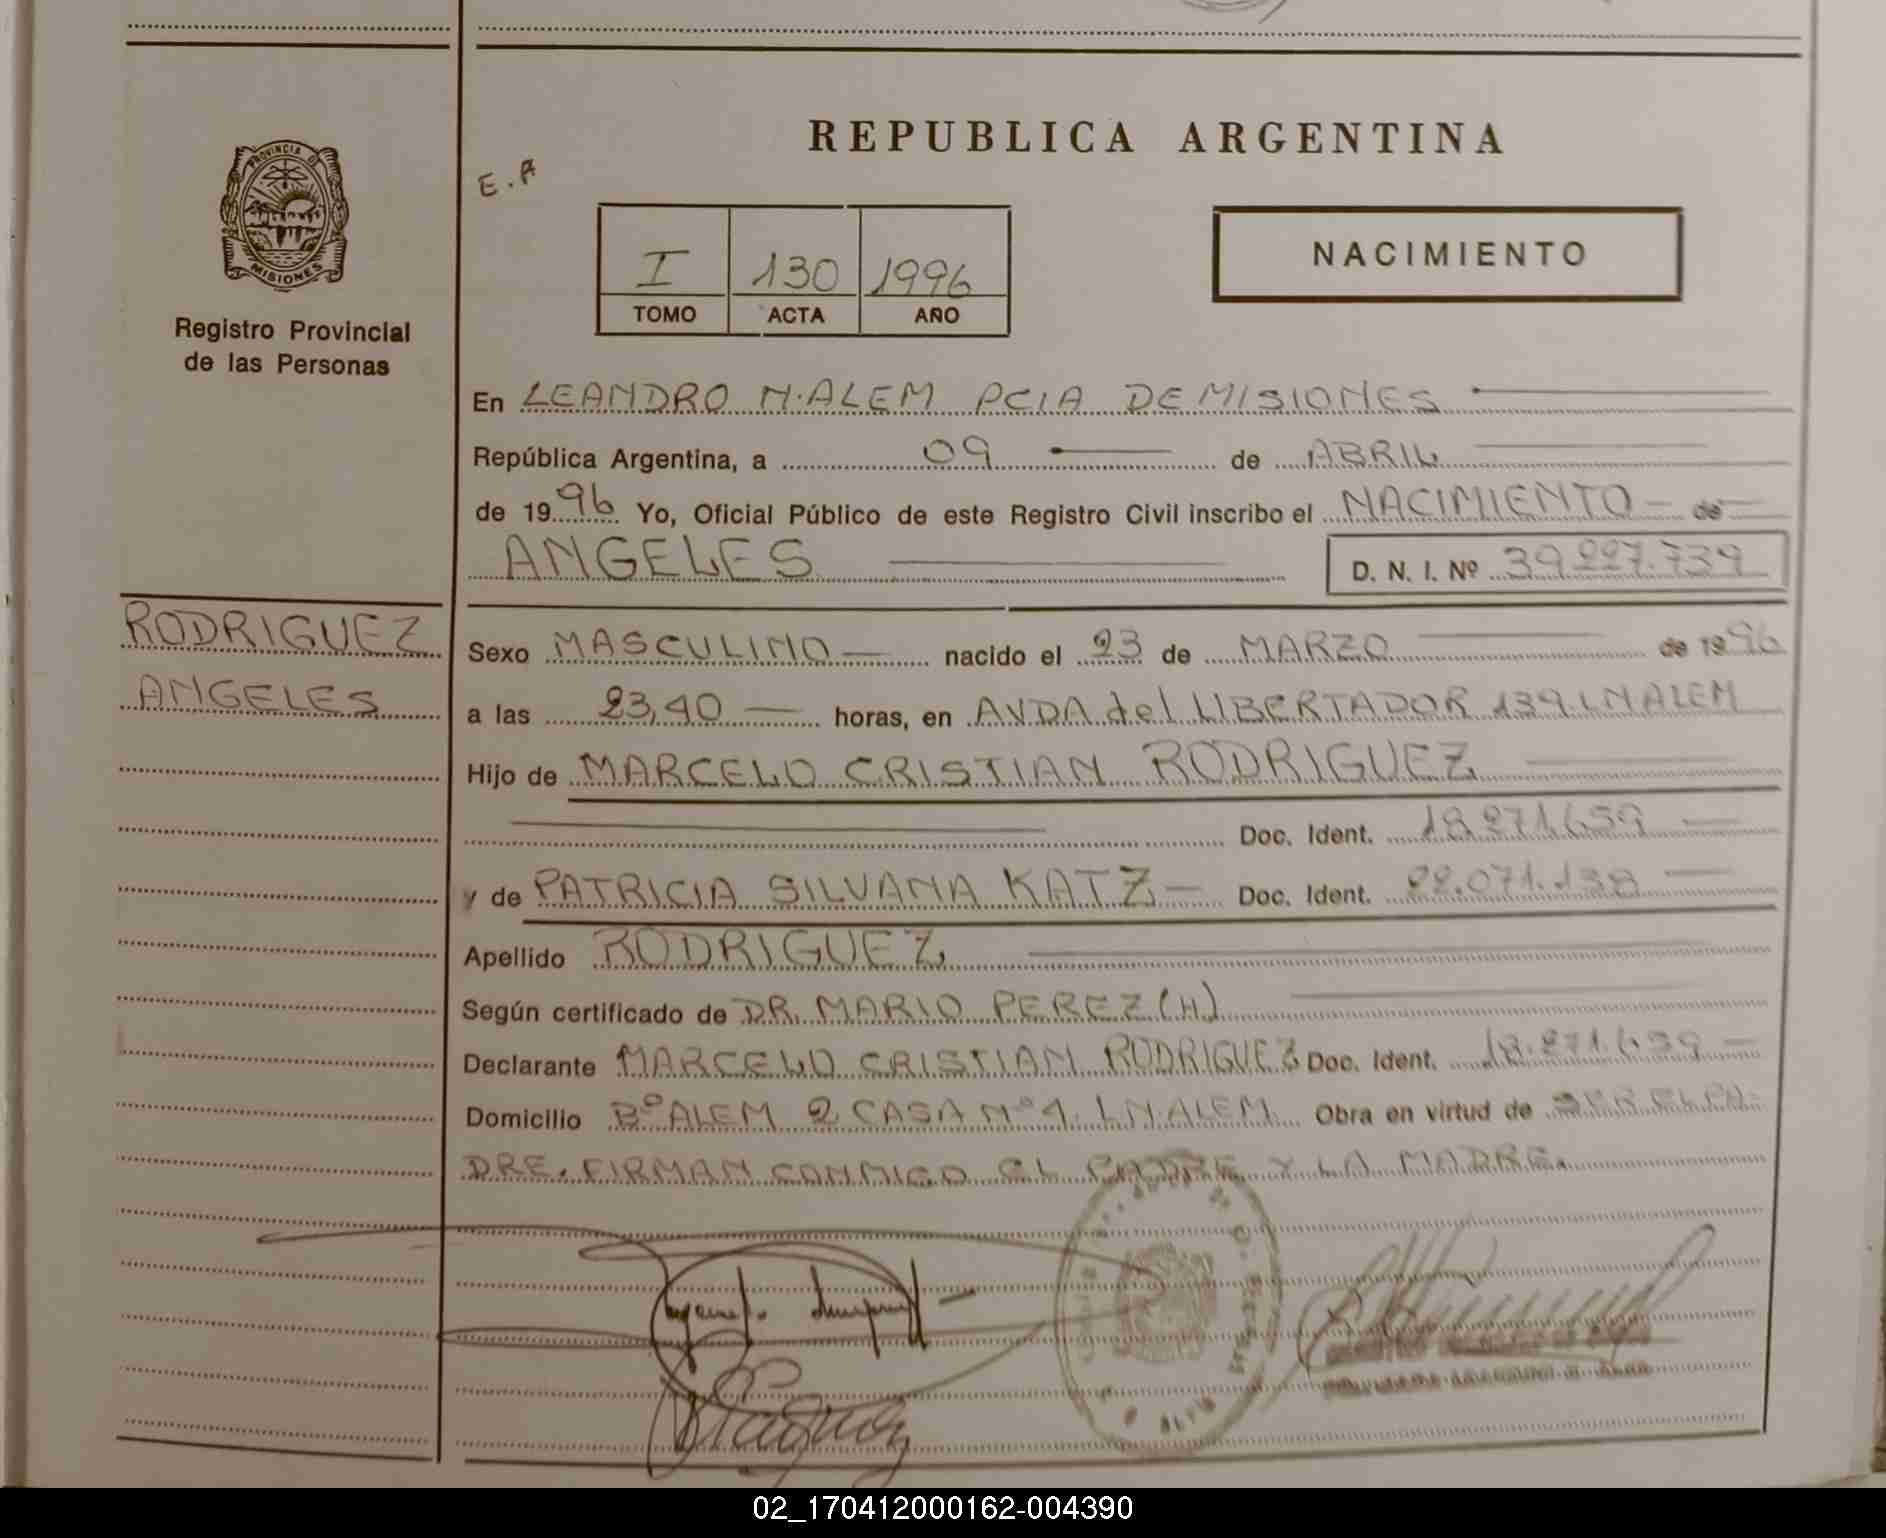 PROVINCIA DE
MISIONES
Registro Provincial
de las Personas
RODRIGUEZ
ANGELES
REPUBLICA ARGENTINA
E.A
I 130 1996
TOMO ACTA AÑO
NACIMIENTO
En LEANDRO N.ALEM PCIA DE MISIONES
República Argentina, a 09 de ABRIL
de 1996 Yo, Oficial Público de este Registro Civil inscribo el NACIMIENTO de
ANGELES D. N. I. Nº 39.227.739
Sexo MASCULINO nacido el 23 de MARZO de 1996
a las 23,40 horas, en AVDA del LIBERTADOR 139 L N ALEM
Hijo de MARCELO CRISTIAN RODRIGUEZ
Doc. Ident. 18.271.659
y de PATRICIA SILVANA KATZ Doc. Ident. 22.071.138
Apellido RODRIGUEZ
Según certificado de DR. MARIO PEREZ (H)
Declarante MARCELO CRISTIAN RODRIGUEZ Doc. Ident. 18.271.659
Domicilio Bº ALEM 2 CASA Nº 1. L.N.ALEM Obra en virtud de SER EL PA-
DRE. FIRMAN CONMIGO EL PADRE Y LA MADRE.
02_170412000162-004390